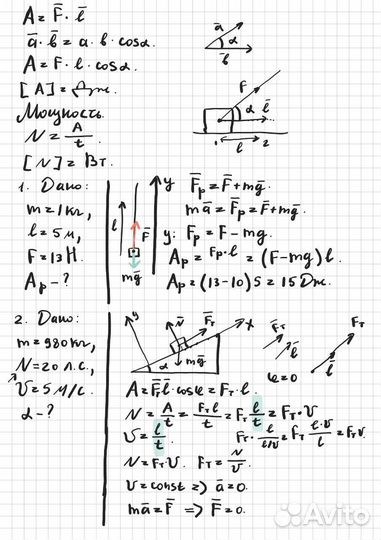 A = F̅ · l̅
a̅ · b̅ = a · b · cosα.
A = F · l · cosα.
[A] = Дж.
Мощность.
N = A/t.
[N] = Вт.
a̅
α
b̅
F
α
l̅
1
l
2
1. Дано:
m = 1 кг,
l = 5 м,
F = 13 Н.
Aр - ?
l
y
F̅
mg̅
F̅р = F̅ + mg̅.
ma̅ = F̅р = F̅ + mg̅.
y: Fр = F - mg.
Aр = Fр · l = (F - mg) l.
Aр = (13 - 10) 5 = 15 Дж.
2. Дано:
m = 980 кг,
N = 20 л.с.,
υ = 5 м/с.
α - ?
y
N̅
F̅т
x
mg̅
α
F̅т
l̅
α = 0
F̅т
l̅
A = F̅т l̅ cosα = Fт · l.
N = A/t = Fт l/t = Fт l/t = Fт · υ
υ = l/t.
Fт · l/(l/υ) = Fт l · υ/l = Fт υ.
N = Fт υ. Fт = N/υ.
υ = const => a̅ = 0.
ma̅ = F̅ => F̅ = 0.
Avito